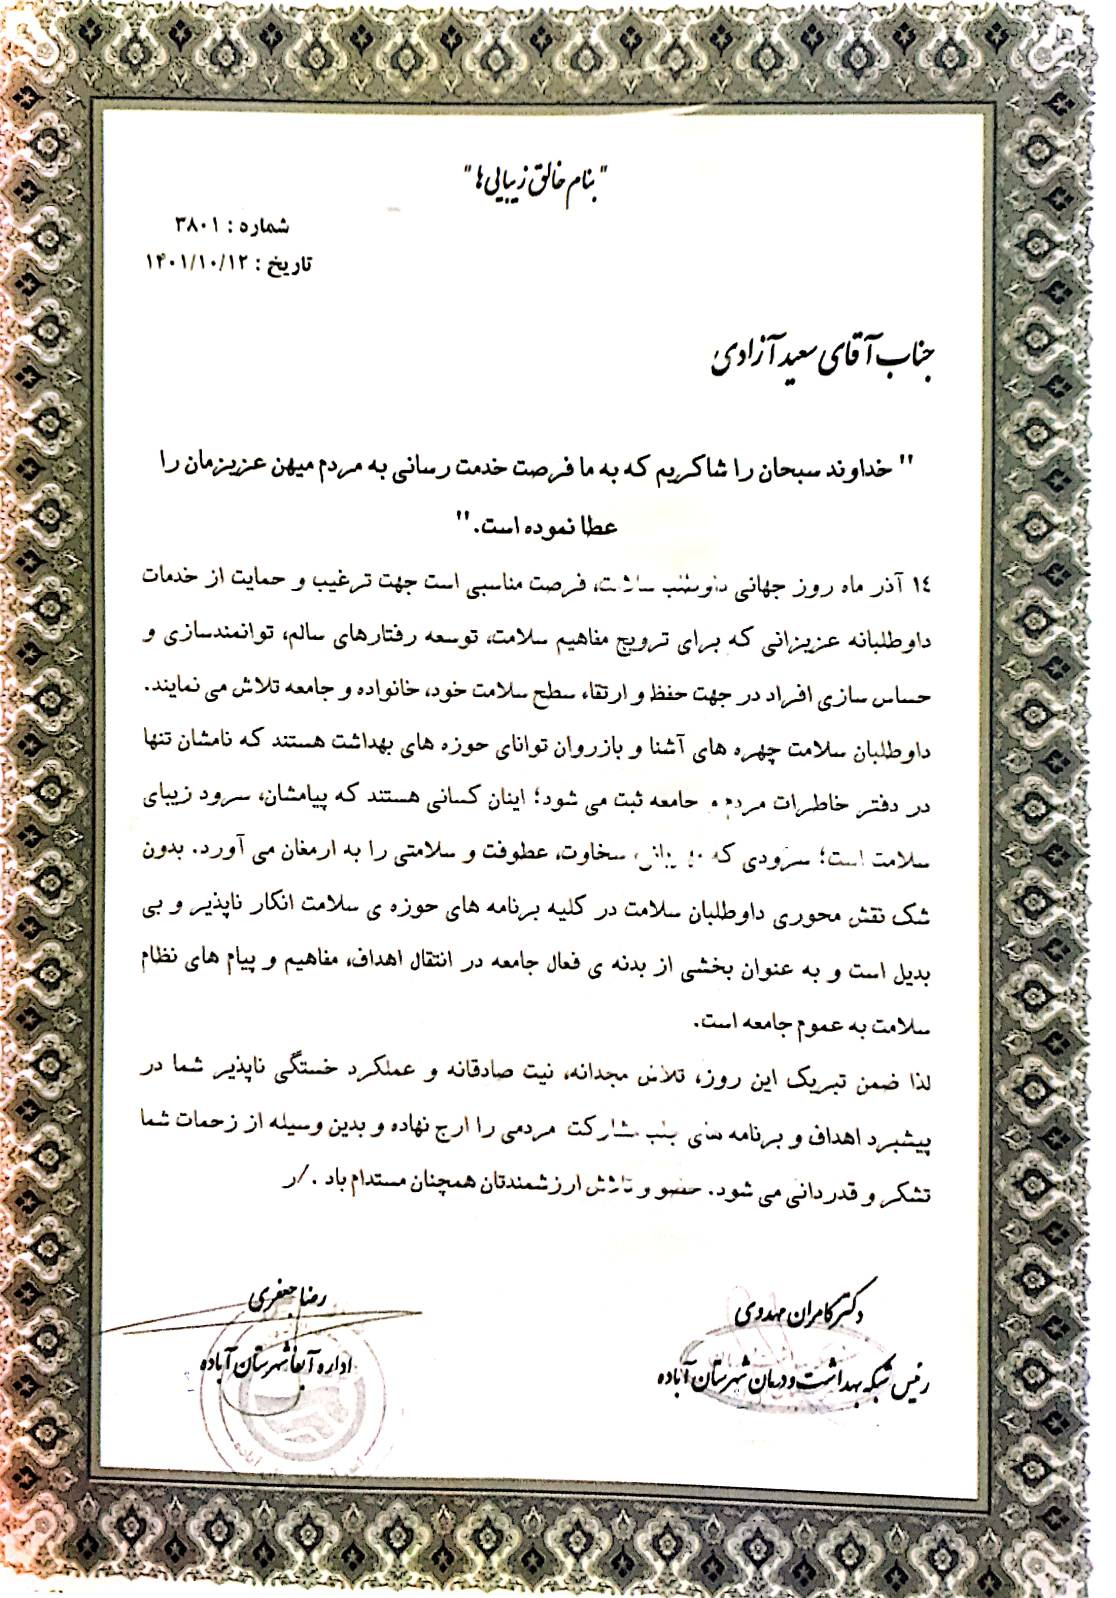 "بنام خالق زیبایی ها"
شماره : ۳۸۰۱
تاریخ : ۱۴۰۱/۱۰/۱۲
جناب آقای سعید آزادی
" خداوند سبحان را شاکریم که به ما فرصت خدمت رسانی به مردم میهن عزیزمان را
عطا نموده است."
۱٤ آذر ماه روز جهانی داوطلب سلامت، فرصت مناسبی است جهت ترغیب و حمایت از خدمات
داوطلبانه عزیزانی که برای ترویج مفاهیم سلامت، توسعه رفتارهای سالم، توانمندسازی و
حساس سازی افراد در جهت حفظ و ارتقاء سطح سلامت خود، خانواده و جامعه تلاش می نمایند.
داوطلبان سلامت چهره های آشنا و بازروان توانای حوزه های بهداشت هستند که نامشان تنها
در دفتر خاطرات مردم و جامعه ثبت می شود؛ اینان کسانی هستند که پیامشان، سرود زیبای
سلامت است؛ سرودی که سخاوت، عطوفت و سلامتی را به ارمغان می آورد. بدون
شک نقش محوری داوطلبان سلامت در کلیه برنامه های حوزه ی سلامت انکار ناپذیر و بی
بدیل است و به عنوان بخشی از بدنه ی فعال جامعه در انتقال اهداف، مفاهیم و پیام های نظام
سلامت به عموم جامعه است.
لذا ضمن تبریک این روز، تلاش مجدانه، نیت صادقانه و عملکرد خستگی ناپذیر شما در
پیشبرد اهداف و برنامه های جلب مشارکت مردمی را ارج نهاده و بدین وسیله از زحمات شما
تشکر و قدردانی می شود. حضو و تلاش ارزشمندتان همچنان مستدام باد ./ر
دکتر کامران مهدوی
رئیس شبکه بهداشت و درمان شهرستان آباده
رضا جعفری
اداره آبفا شهرستان آباده